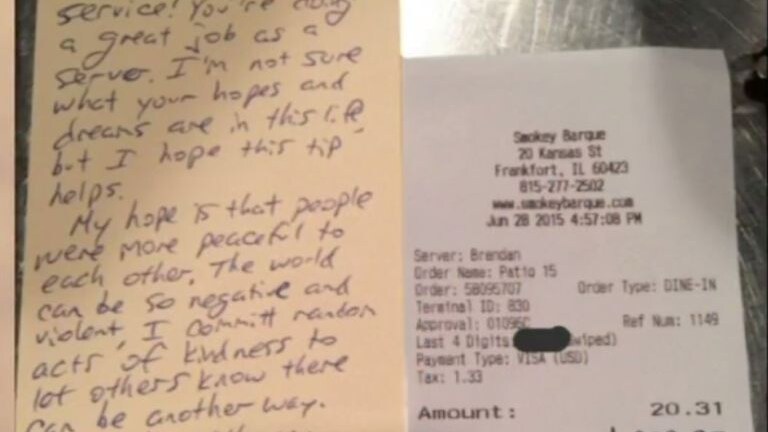 service! You're doing
a great job as a
server. I'm not sure
what your hopes and
dreams are in this life,
but I hope this tip
helps.
My hope is that people
were more peaceful to
each other. The world
can be so negative and
violent, I committ random
acts of kindness to
lot others know there
can be another way.
Smokey Barque
20 Kansas St
Frankfort, IL 60423
815-277-2502
www.smokeybarque.com
Jun 28 2015 4:57:08 PM
Server: Brendan
Order Name: Patio 15
Order: 58095707 Order Type: DINE-IN
Terminal ID: 830
Approval: 01096C Ref Num: 1149
Last 4 Digits wiped)
Payment Type: VISA (USD)
Tax: 1.33
Amount: 20.31